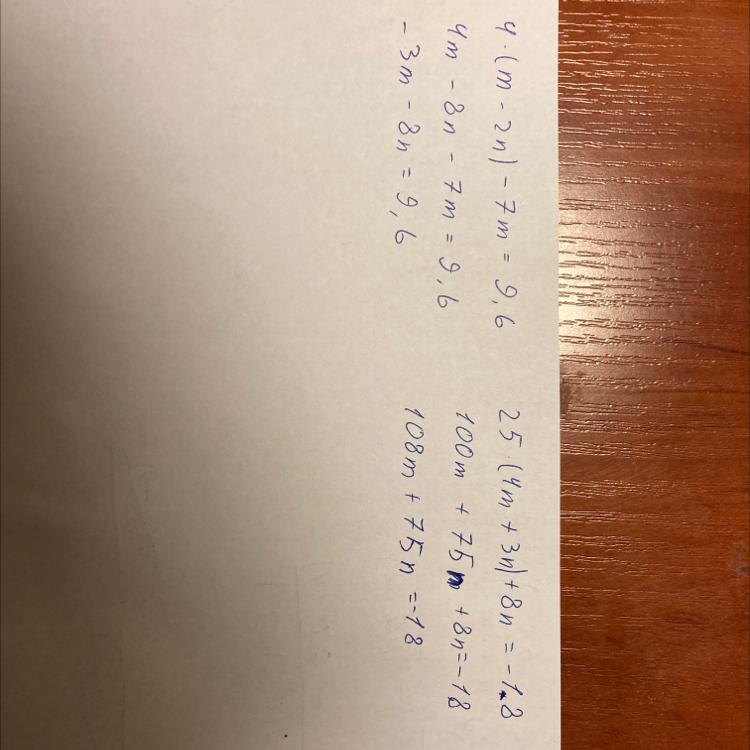 4·(m - 2n) - 7m = 9,6
4m - 8n - 7m = 9,6
- 3m - 8n = 9,6
25·(4m + 3n) + 8n = -18
100m + 75n + 8n = -18
108m + 75n = -18